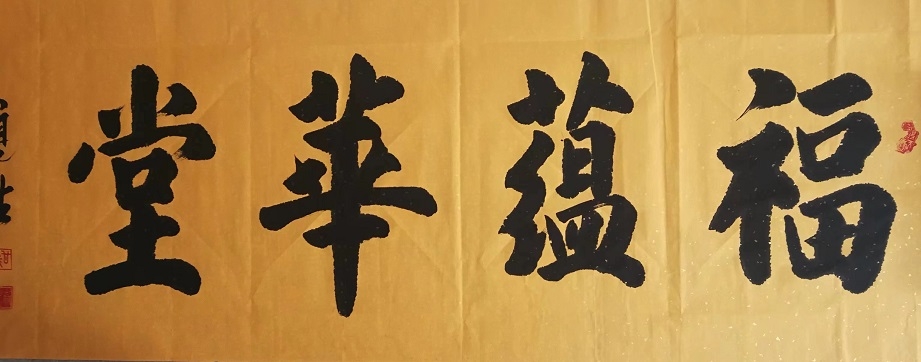 福蘊華堂